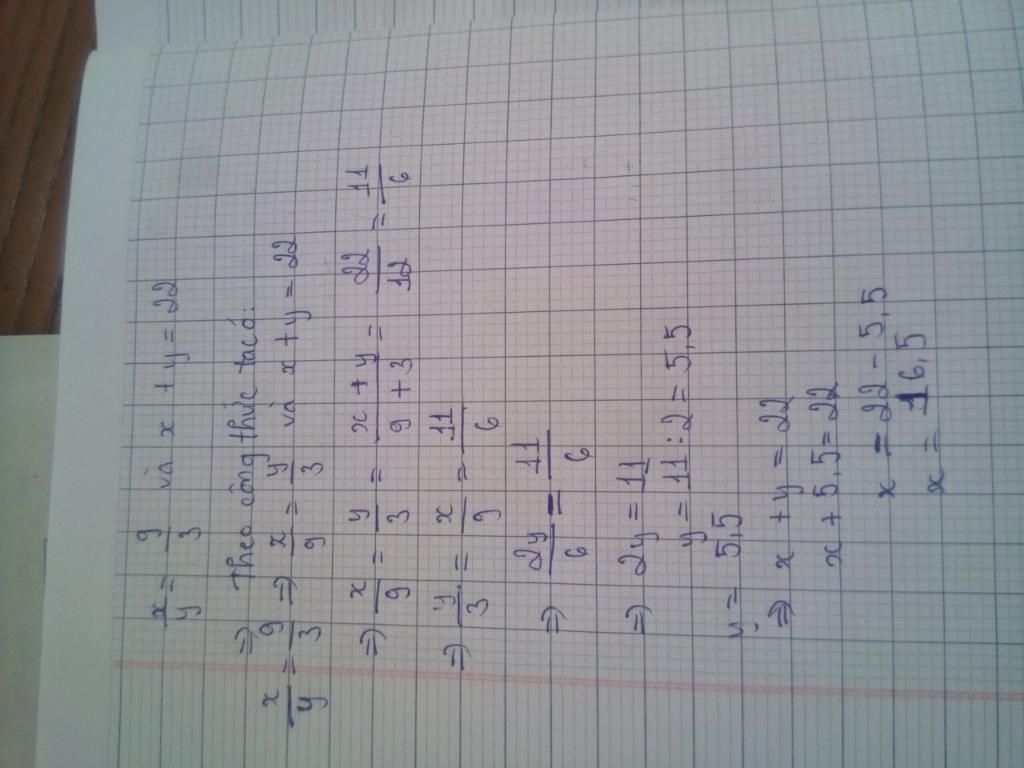 x/y = 9/3 và x + y = 22
⇒ Theo công thức ta có:
x/y = 9/3 ⇒ x/9 = y/3 và x + y = 22
⇒ x/9 = y/3 = x + y/9 + 3 = 22/12 = 11/6
⇒ y/3 = x/9 = 11/6
⇒ 2y/6 = 11/6
⇒ 2y = 11
y = 11 : 2 = 5,5
y = 5,5
⇒ x + y = 22
x + 5,5 = 22
x = 22 - 5,5
x = 16,5